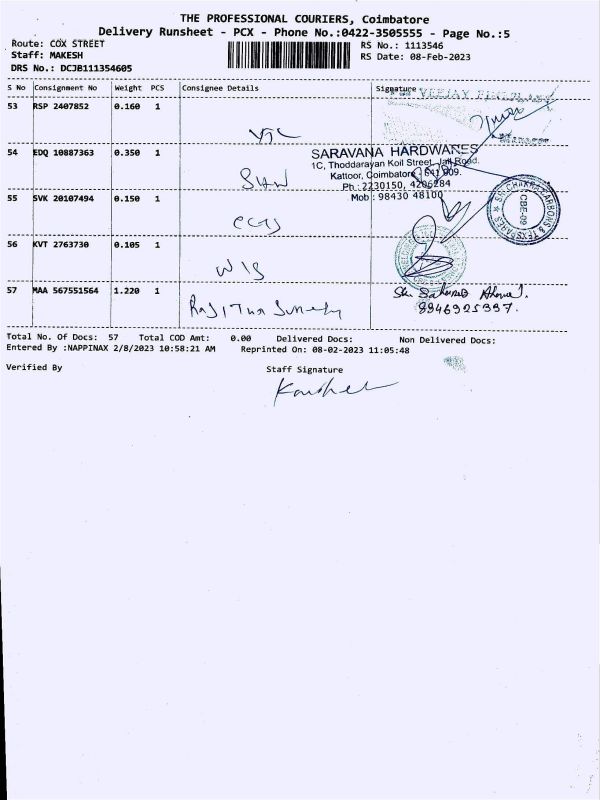 THE PROFESSIONAL COURIERS, Coimbatore
Delivery Runsheet - PCX - Phone No.:0422-3505555 - Page No.:5
Route: COX STREET
RS No.: 1113546
Staff: MAKESH
RS Date: 08-Feb-2023
DRS No.: DCJB111354605
S No Consignment No Weight PCS Consignee Details Signature
53 RSP 2407852 0.160 1
54 EDQ 10887363 0.350 1
SARAVANA HARDWARES
1C, Thoddarayan Koil Street, Jail Road,
Kattoor, Coimbatore - 641 009.
Ph : 2230150, 4206284
Mob : 98430 48100
55 SVK 20107494 0.150 1
CBE-09
56 KVT 2763730 0.105 1
WIS
57 MAA 567551564 1.220 1
Total No. Of Docs: 57 Total COD Amt: 0.00 Delivered Docs: Non Delivered Docs:
Entered By :NAPPINAX 2/8/2023 10:58:21 AM Reprinted On: 08-02-2023 11:05:48
Verified By Staff Signature